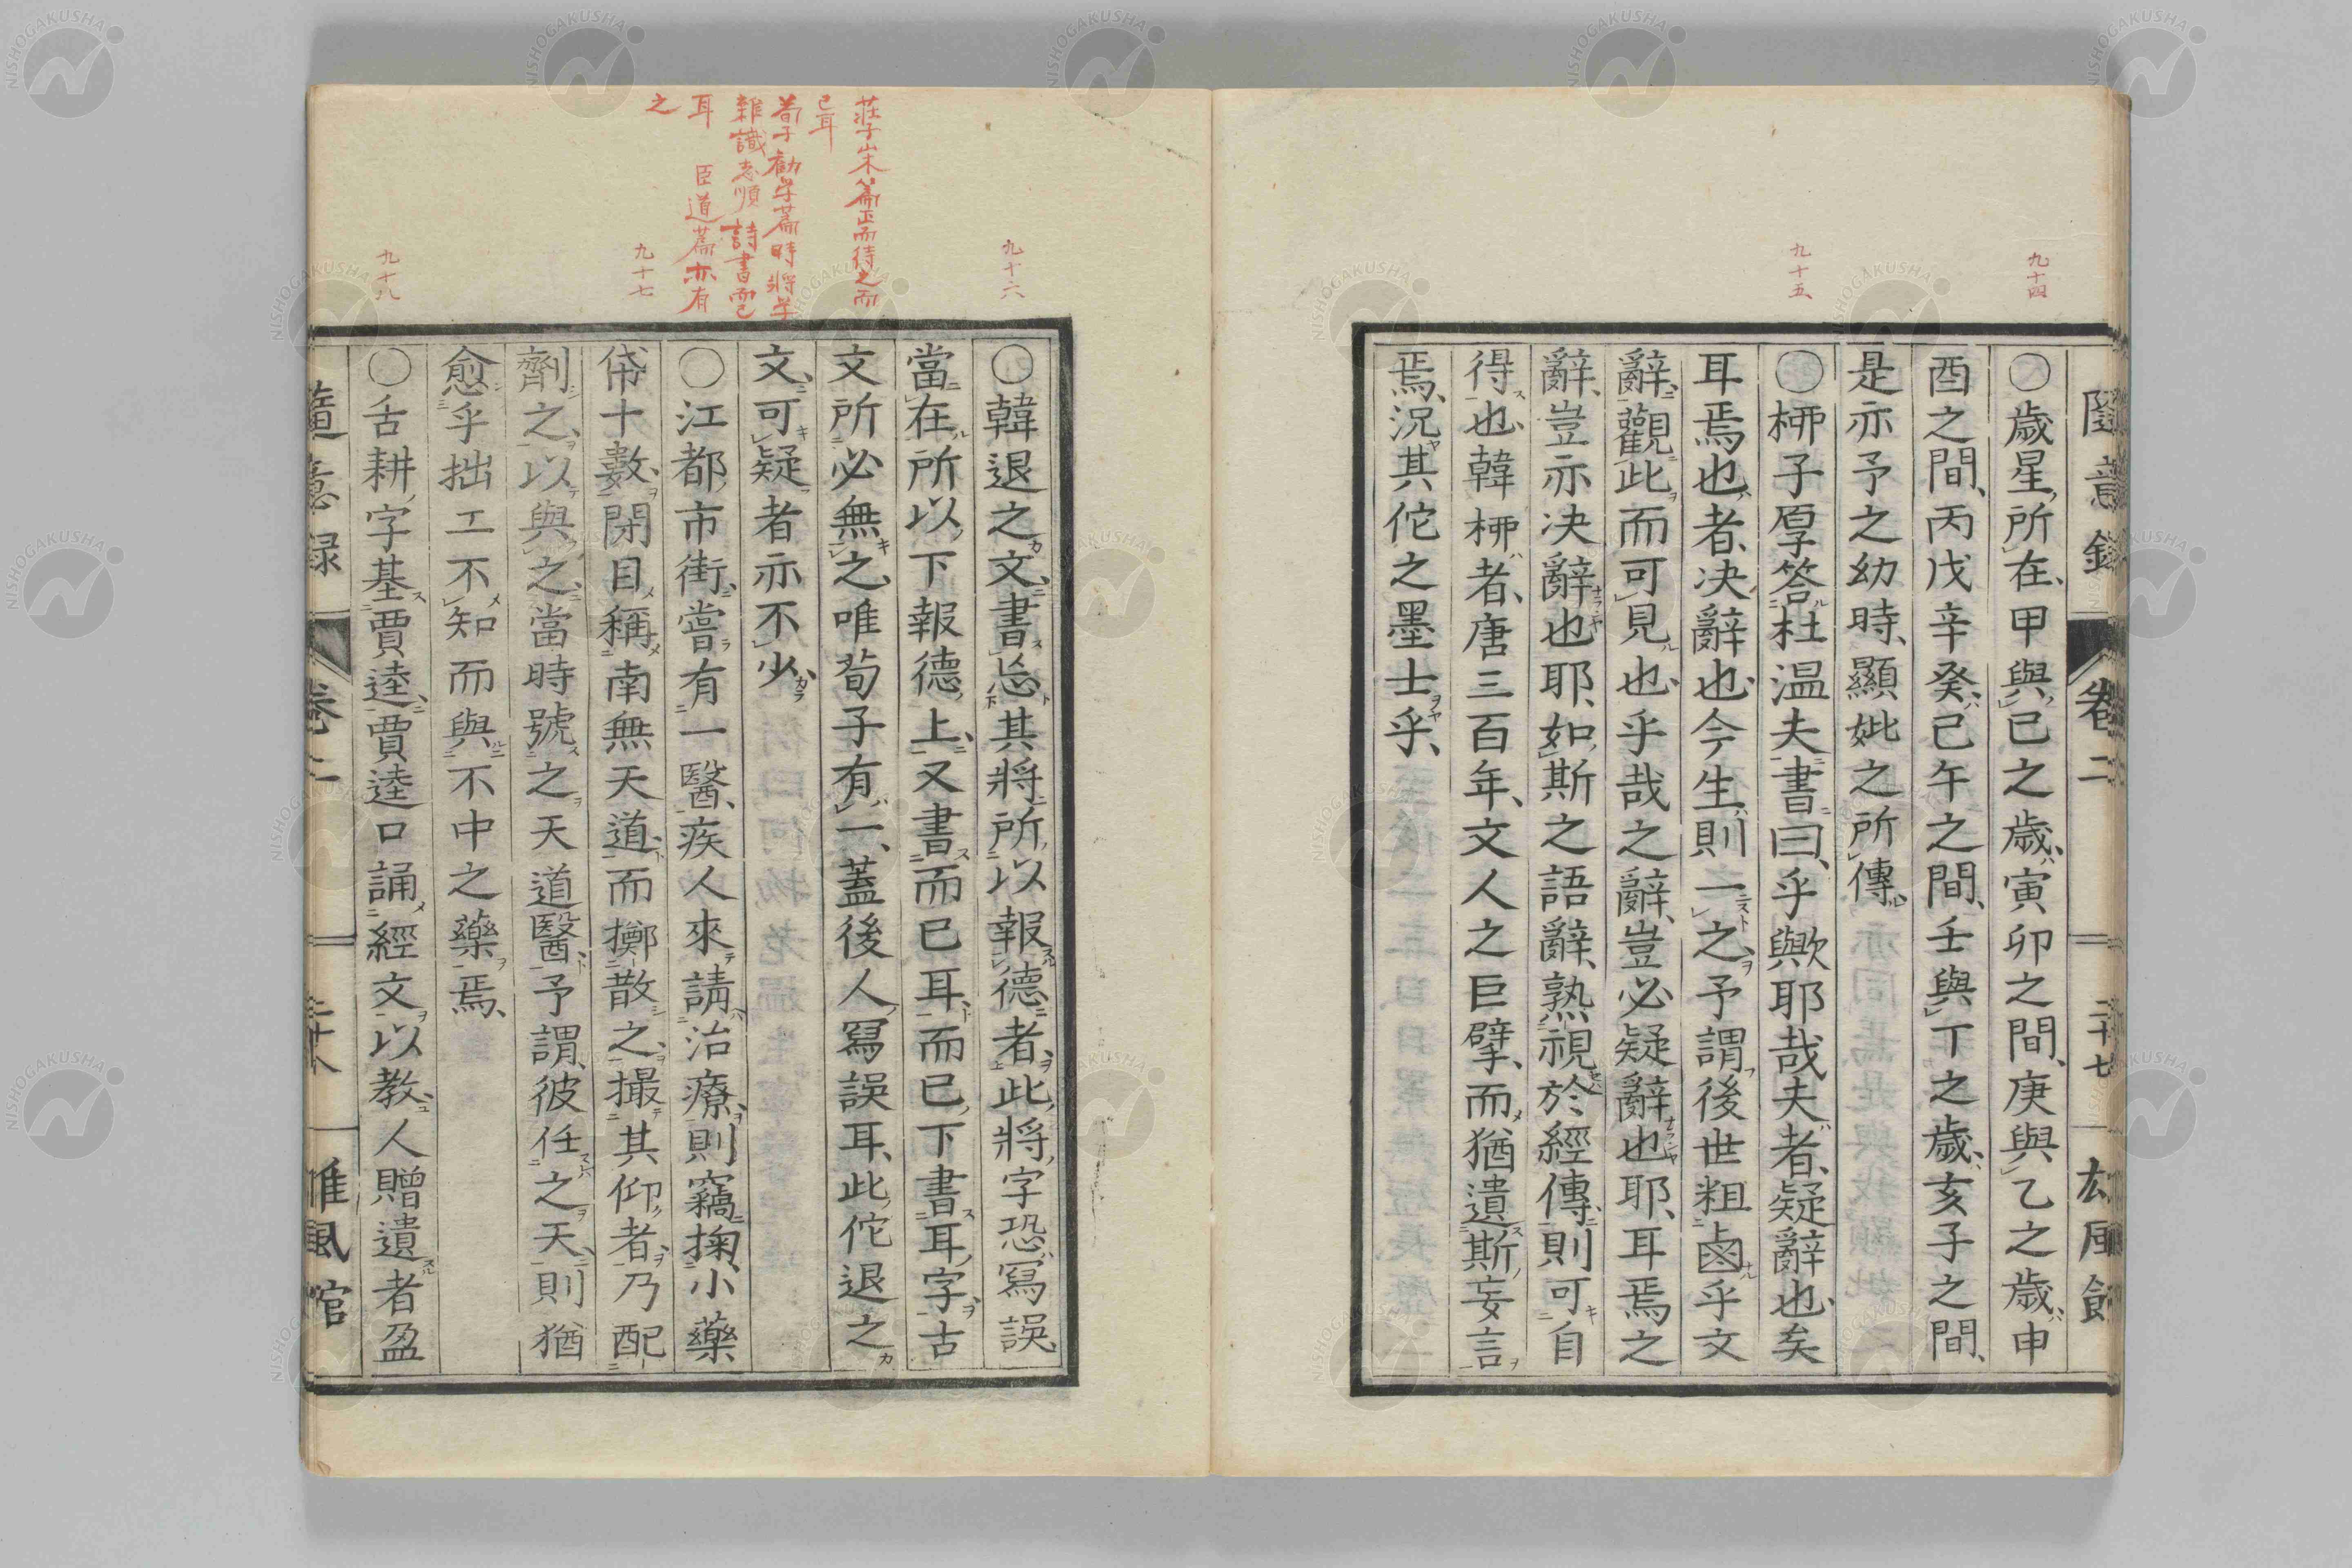 隨意錄 卷二 二十七
九十四
〇歲星所在甲與己之歲寅卯之間庚與乙之歲申
酉之間丙戊辛癸己午之間壬與丁之歲亥子之間
是亦予之幼時顯妣之所傳
九十五
〇柳子厚答杜温夫書曰乎歟耶哉夫者疑辭也矣
耳焉也者决辭也今生則一之予謂後世粗鹵乎文
辭觀此而可見也乎哉之辭豈必疑辭也耶耳焉之
辭豈亦决辭也耶如斯之語辭熟視於經傳則可自
得也韓柳者唐三百年文人之巨擘而猶遺斯妄言
焉況其佗之墨士乎
九十六
〇韓退之文書忘其將所以報德者此將字恐寫誤
當在所以下報德上又書而已耳而已下書耳字古
文所必無之唯荀子有一蓋後人寫誤耳此佗退之
文可疑者亦不少
莊子山木篇正而待之而
已耳
荀子勸学篇時將学
雜識志順詩書而已
耳 臣道篇亦有
之
九十七
〇江都市街嘗有一醫疾人來請治療則竊掬小藥
帒十數閉目稱南無天道而擲散之撮其仰者乃配
劑之以與之當時號之天道醫予謂彼任之天則猶
愈乎拙工不知而與不中之藥焉
九十八
〇舌耕字基賈逵賈逵口誦經文以教人贈遺者盈
隨意録 卷二 二十八 惟風館